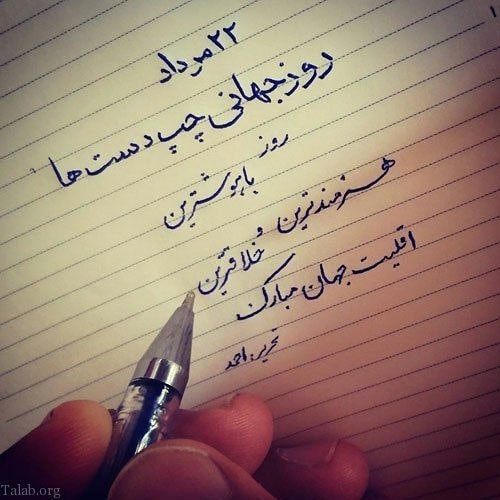 ۲۲ مرداد
روز جهانی چپ دست ها
روز
باهوشترین
هنرمندترین و
خلاقترین
اقلیت جهان مبارک
تحریر: احمد
Talab.org